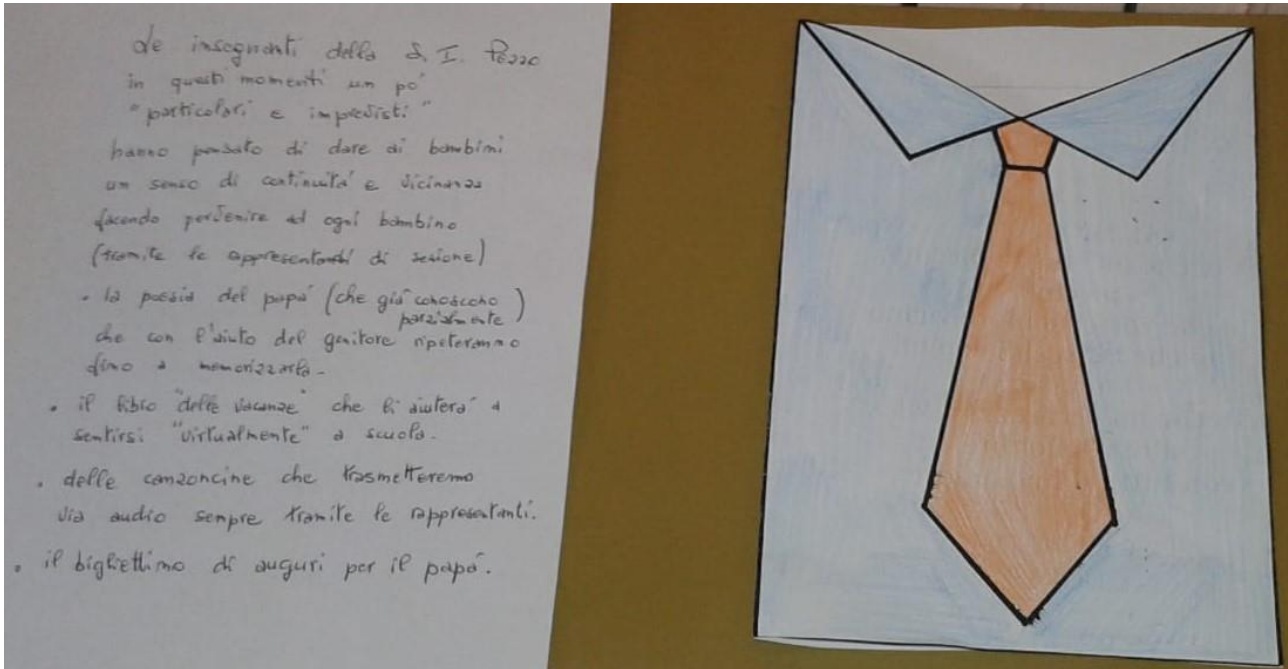 Le insegnanti della S. I. Pozzo
in questi momenti un po'
"particolari e imprevisti"
hanno pensato di dare ai bambini
un senso di continuità e vicinanza
facendo pervenire ad ogni bambino
(tramite le rappresentanti di sezione)
• la poesia del papà (che già conoscono
parzialmente)
che con l'aiuto del genitore ripeteranno
fino a memorizzarla.
• il libro "delle vacanze" che li aiuterà a
sentirsi "virtualmente" a scuola.
• delle canzoncine che trasmetteremo
via audio sempre tramite le rappresentanti.
• il bigliettino di auguri per il papà.